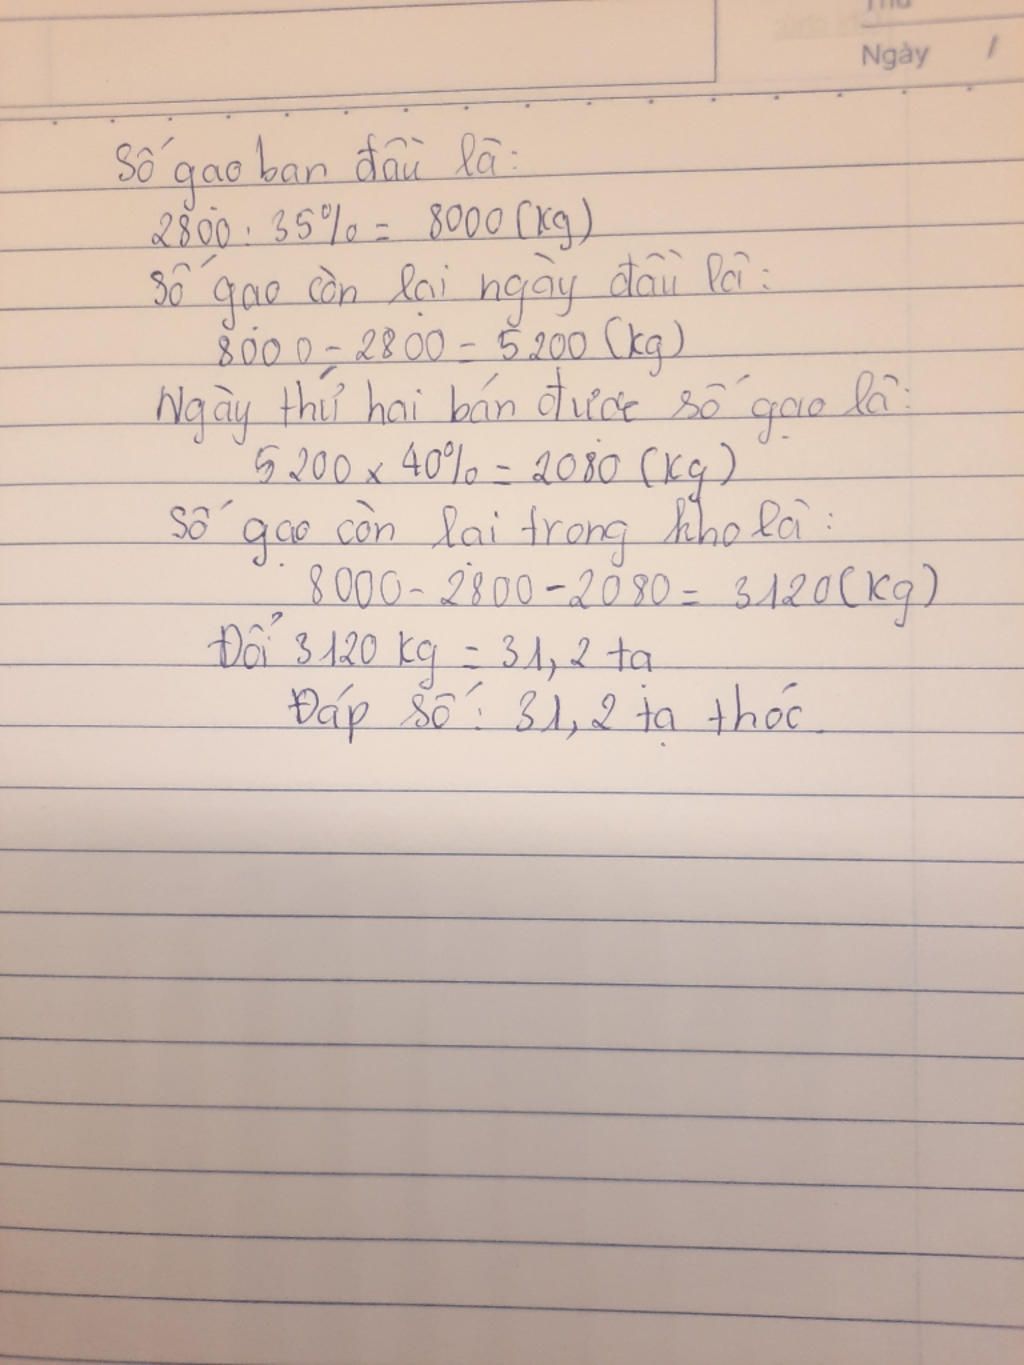 Thứ
Ngày /
Số gạo ban đầu là:
2800 : 35% = 8000 (kg)
Số gạo còn lại ngày đầu là:
8000 - 2800 = 5200 (kg)
Ngày thứ hai bán được số gạo là:
5200 x 40% = 2080 (kg)
Số gạo còn lại trong kho là:
8000 - 2800 - 2080 = 3120 (kg)
Đổi 3120 kg = 31,2 tạ
Đáp số: 31,2 tạ thóc.